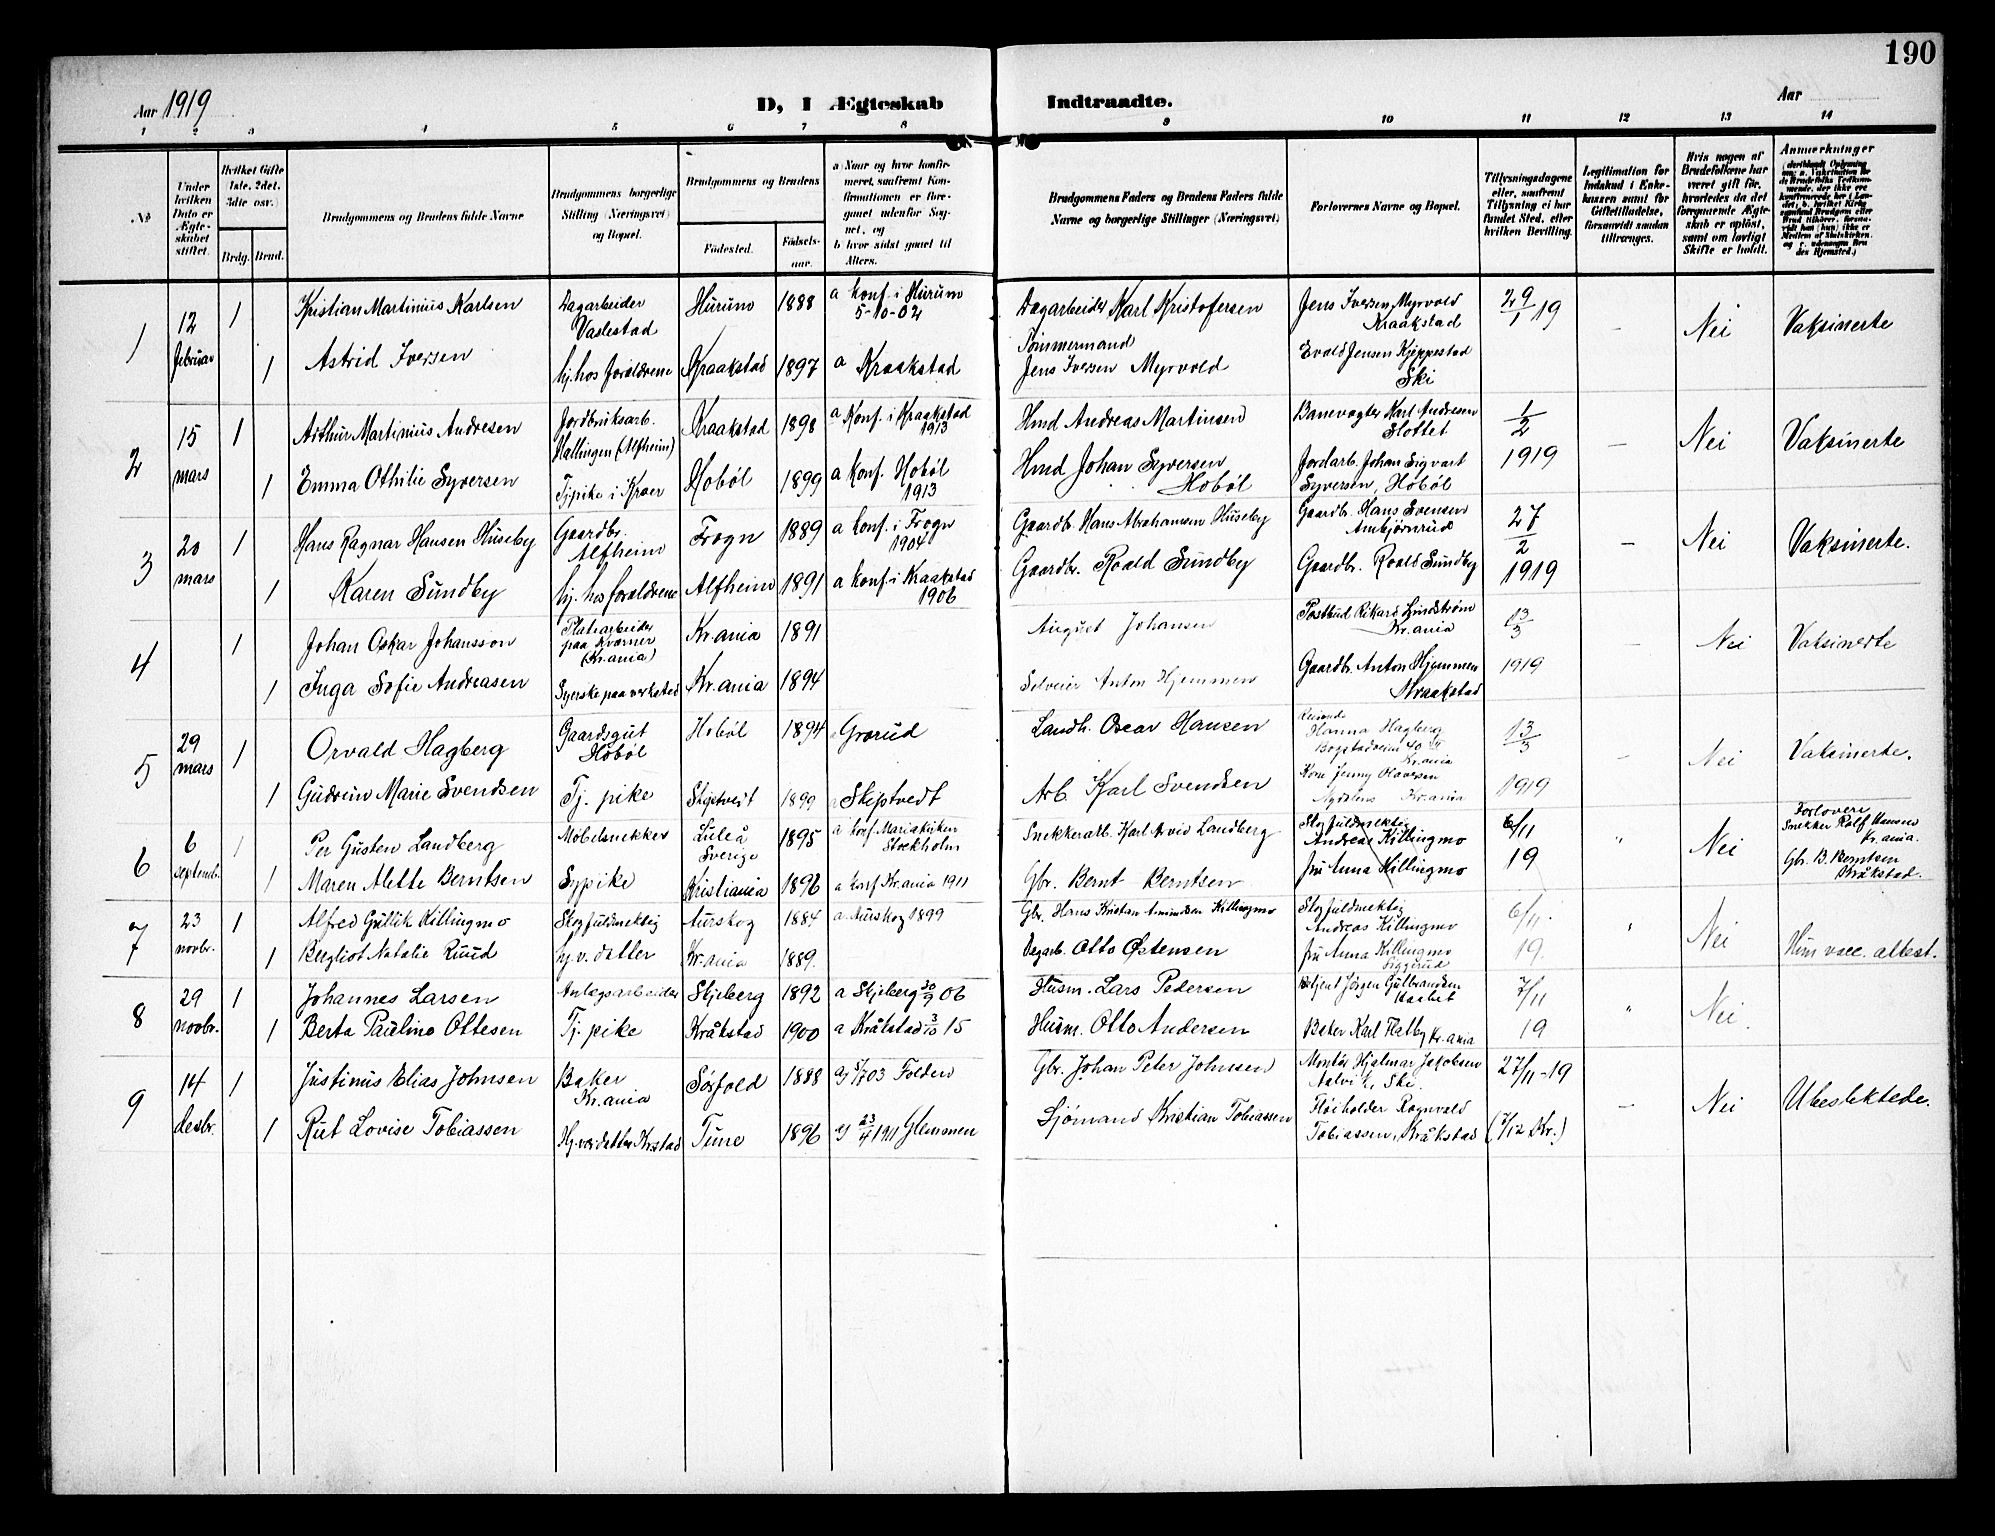 190
Aar 1919
D, I Ægteskab Indtraadte.
Aar
1 2 3 4 5 6 7 8 9 10 11 12 13 14
No
Under hvilken Dato er Ægteskabet stiftet.
Hvilket Gifte (1ste, 2det, 3die osv.)
Brdg. Brud.
Brudgommens og Brudens fulde Navne
Brudgommens borgerlige Stilling (Næringsvei) og Bopæl.
Brudgommens og Brudens
Fødested.
Fødselsaar.
a Naar og hvor konfirmeret, saafremt Konfirmationen er foregaaet udenfor Sognet, og
b hvor sidst gaaet til Alters.
Brudgommens Faders og Brudens Faders fulde Navne og borgerlige Stillinger (Næringsvei)
Forlovernes Navne og Bopæl.
Tillysningsdagene eller, saafremt Tillysning ei har fundet Sted, efter hvilken Bevilling.
Legitimation for Indskud i Enkekassen samt for Giftetilladelse, forsaavidt saadan tiltrænges.
Hvis nogen af Brudefolkene har været gift før, hvorledes da det foregaaende Ægteskab er opløst, samt om lovligt Skifte er holdt.
Anmerkninger
1 12 februar 1 Kristian Martinius Karlsen Dagarbeider Vaslestad Hurum 1888 a Konf. i Hurum 5-10-02 Dagarbeider Karl Kristofersen Jens Iversen Myrvold Kraakstad 29/1 19 – Nei Vaksinerte
1 Astrid Iversen hj. hos forældrene Kraakstad 1897 a Kraakstad Tømmermand Jens Iversen Myrvold Evald Jensen Kjeppestad Ski
2 15 mars 1 Arthur Martinius Andresen Jordbruksarb. Hallingen (Alfheim) Kraakstad 1898 a Konf. i Kraakstad 1913 Hmd Andreas Martinsen Banevogter Karl Andresen Slottet 1/2 1919 – Nei Vaksinerte
1 Emma Othilie Syversen Tj.pike i Kroer Hobøl 1899 a Konf. Hobøl 1913 Hmd Johan Syversen Hobøl Jordarb. Johan Sigvart Syversen, Hobøl
3 20 mars 1 Hans Ragnar Hansen Huseby Gaardbr. Alfheim Frogn 1889 a Konf. i Frogn 1904 Gaardb. Hans Abrahamsen Huseby Gaardbr. Hans Svensen Ambjørnrud 27/2 1919 – Nei Vaksinerte.
1 Karen Sundby hj. hos forældrene Alfheim 1891 a Konf. i Kraakstad 1906 Gaardbr. Roald Sundby Gaardbr. Roald Sundby
4 1 Johan Oskar Johansson Platearbeider paa Kværner (Kr.ania) Kr.ania 1891 August Johansen Postbud Rikard Lundstrøm Kr.ania 13/3 1919 – Nei Vaksinerte
1 Inga Sofie Andreasen Syerske paa verkstad Kr.ania 1894 Selveier Anton Hjemmen Gaardbr. Anton Hjemmen Kraakstad
5 29 mars 1 Orvald Hagberg Gaardsgut Hobøl Hobøl 1894 Grorud Landh. Oscar Hansen Hanna Hagberg Bogstadveien 40 Kr.ania 13/3 1919 – Nei Vaksinerte.
1 Gudrun Marie Svendsen Tj. pike Skiptvedt 1899 Skiptvedt Arb. Karl Svendsen Kone Jenny Olavesen Kr.ania
6 6 septembr. 1 Per Gusten Landberg Møbelsnekker Luleå Sverige 1895 a konf Mariakirken Stockholm Snekkerarb. Karl Arvid Landberg Skogfuldmektig Andreas Killingmo 6/11 19 " Nei Forlovere Snekker Rolf Hansen Kr.ania.
1 Maren Alette Berntsen Sypike Kristiania 1896 a konf Kr.ania 1911 Gbr. Bernt Berntsen fru Anna Killingmo Gbr. B. Berntsen Kråkstad.
7 23 novbr. 1 Alfred Gullik Killingmo Skogfuldmektig Aurskog 1884 a Aurskog 1899 Gbr. Hans Kristian Amundsen Killingmo Skogfuldmektig Andreas Killingmo 6/11. 19. " Nei Hun vacc. attest.
1 Bergliot Natalie Ruud hj.v. datter Kr.ania 1889. Dagarb. Otto Østensen fru Anna Killingmo Siggerud
8 29 novbr. 1 Johannes Larsen Anlægsarbeider Skjeberg 1892 a Skjeberg 30/9 06 Husm. Lars Pedersen Jørgen Gulbrandsen 7/11 19 " Nei.
1 Berta Pauline Ottesen Tj. pike Kråkstad 1900 a Kråkstad 3/10 15 Husm. Otto Andersen Baker Karl Flatby Kr.ania
9 14 desbr. 1 Justinus Elias Johnsen Baker Kr.ania Sørfold 1888 a) 5/7 03 Folden Gbr. Johan Peter Johnsen Montør Hjalmar Jakobsen Ski. 27/11-19 – Nei Ubeslektede.
1 Rut Lovise Tobiassen Hj.vær. datter Kr.stad Tune 1896 a) 23/4 1911 Glemmen Sjømand Kristian Tobiassen Ragnvald Tobiassen, Kråkstad (7/12 Kr.)